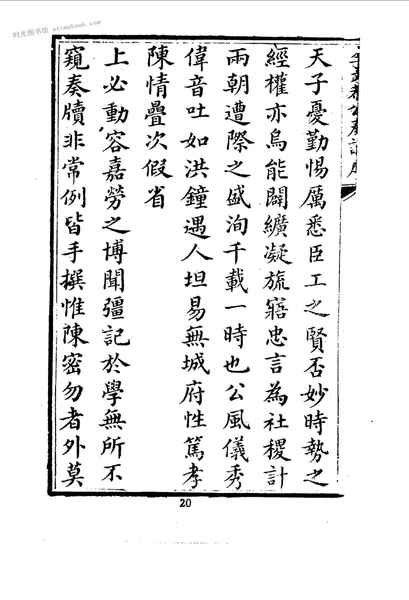 天子憂勤惕厲悉臣工之賢否妙時勢之
經權亦烏能闢纊凝旒寤忠言為社稷計
兩朝遭際之盛洵千載一時也公風儀秀
偉音吐如洪鐘遇人坦易無城府性篤孝
陳情疊次假省
上必動容嘉勞之博聞彊記於學無所不
窺奏牘非常例皆手撰惟陳密勿者外莫
20